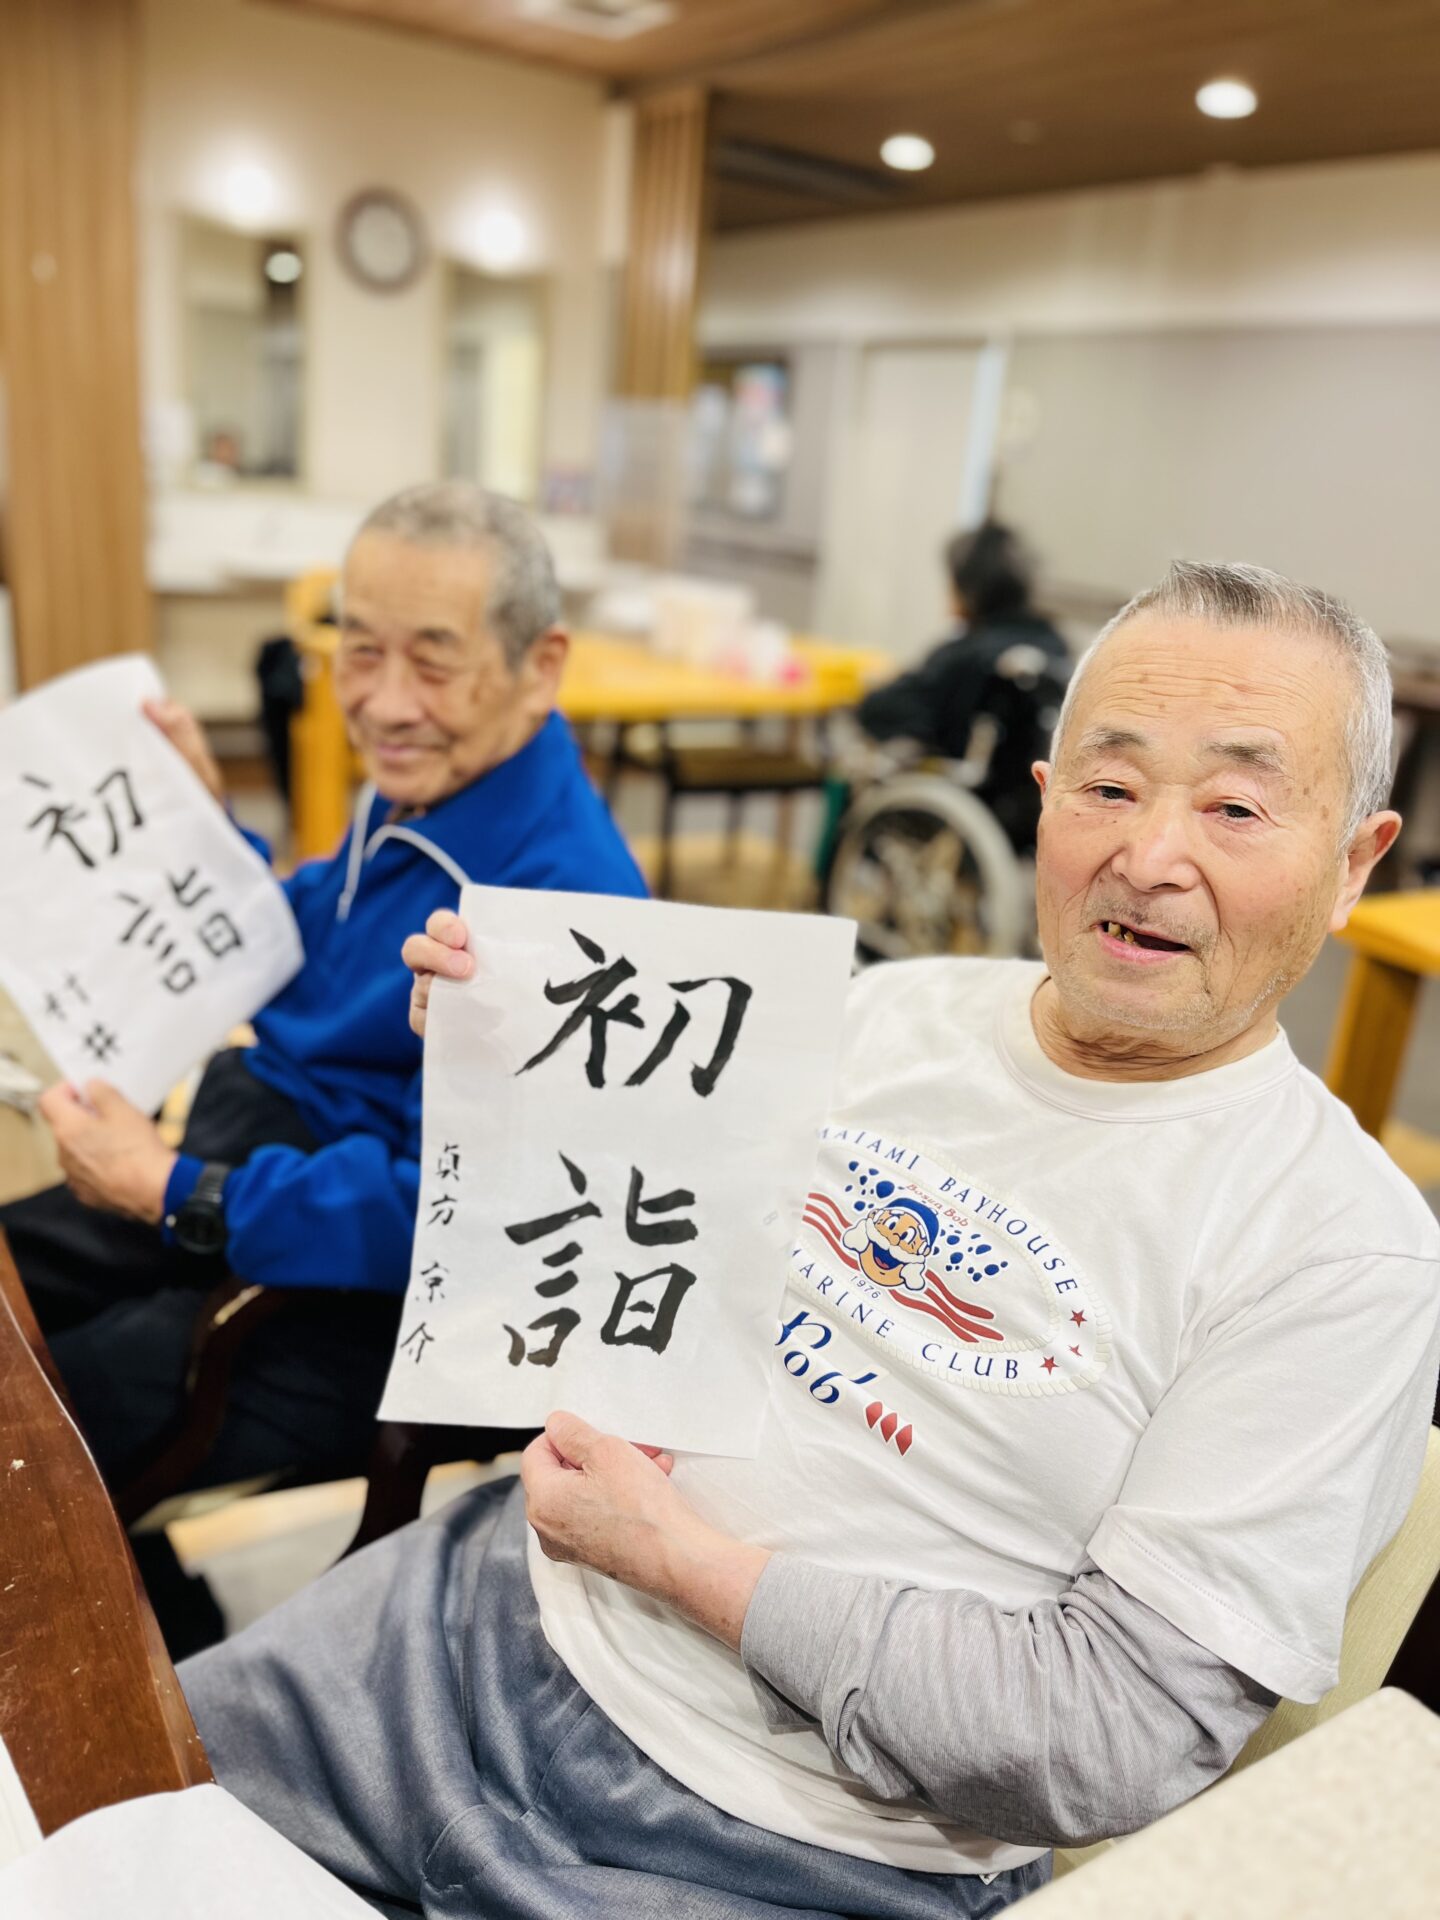 初
詣
村井
初
詣
貞方京介
MAIAMI BAYHOUSE
Bosun Bob
1976
MARINE CLUB
Bob'